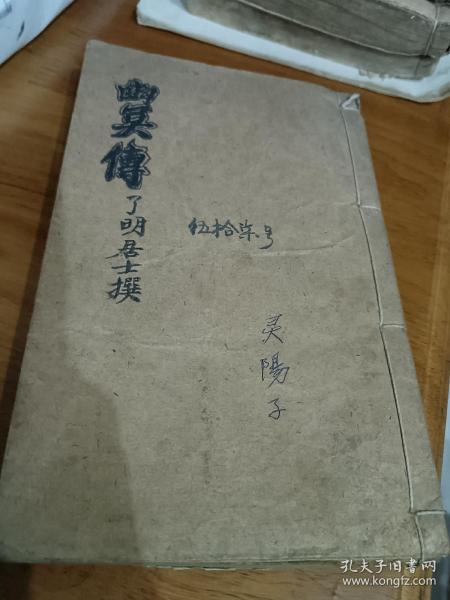 幽冥傳
了明居士撰
伍拾柒号
灵陽子
孔夫子旧书网
www.kongfz.com